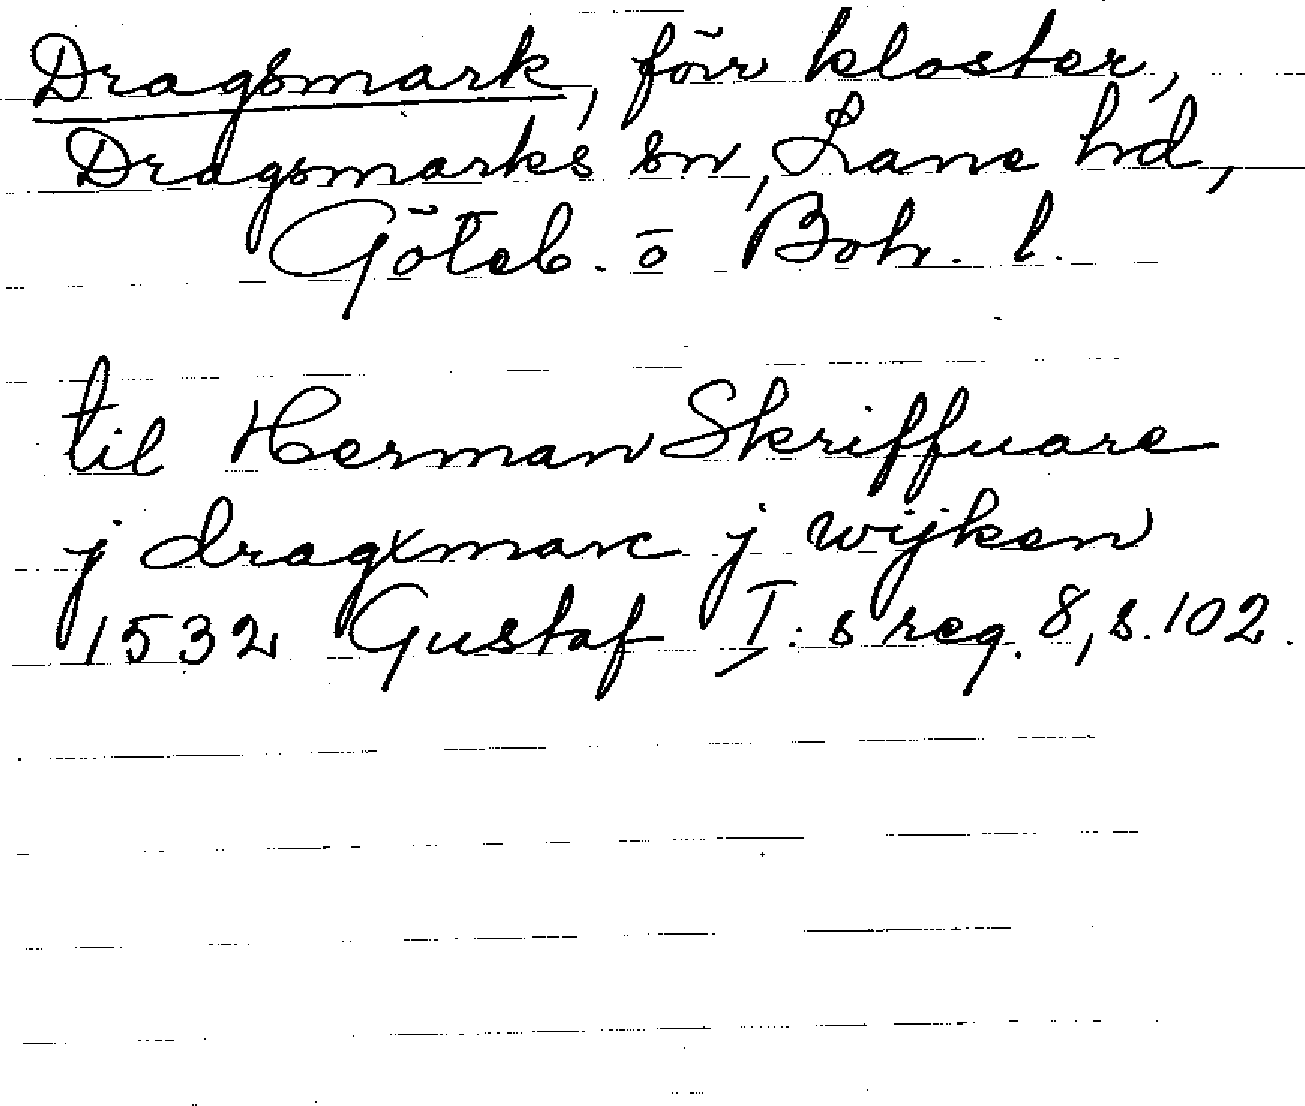 Dragsmark, förr kloster,
Dragsmarks sn, Lane hd,
Göteb. o Boh. l.
til Herman Skriffuare
j dragxmarc j wijken
1532 Gustaf I:s reg. 8, s. 102.